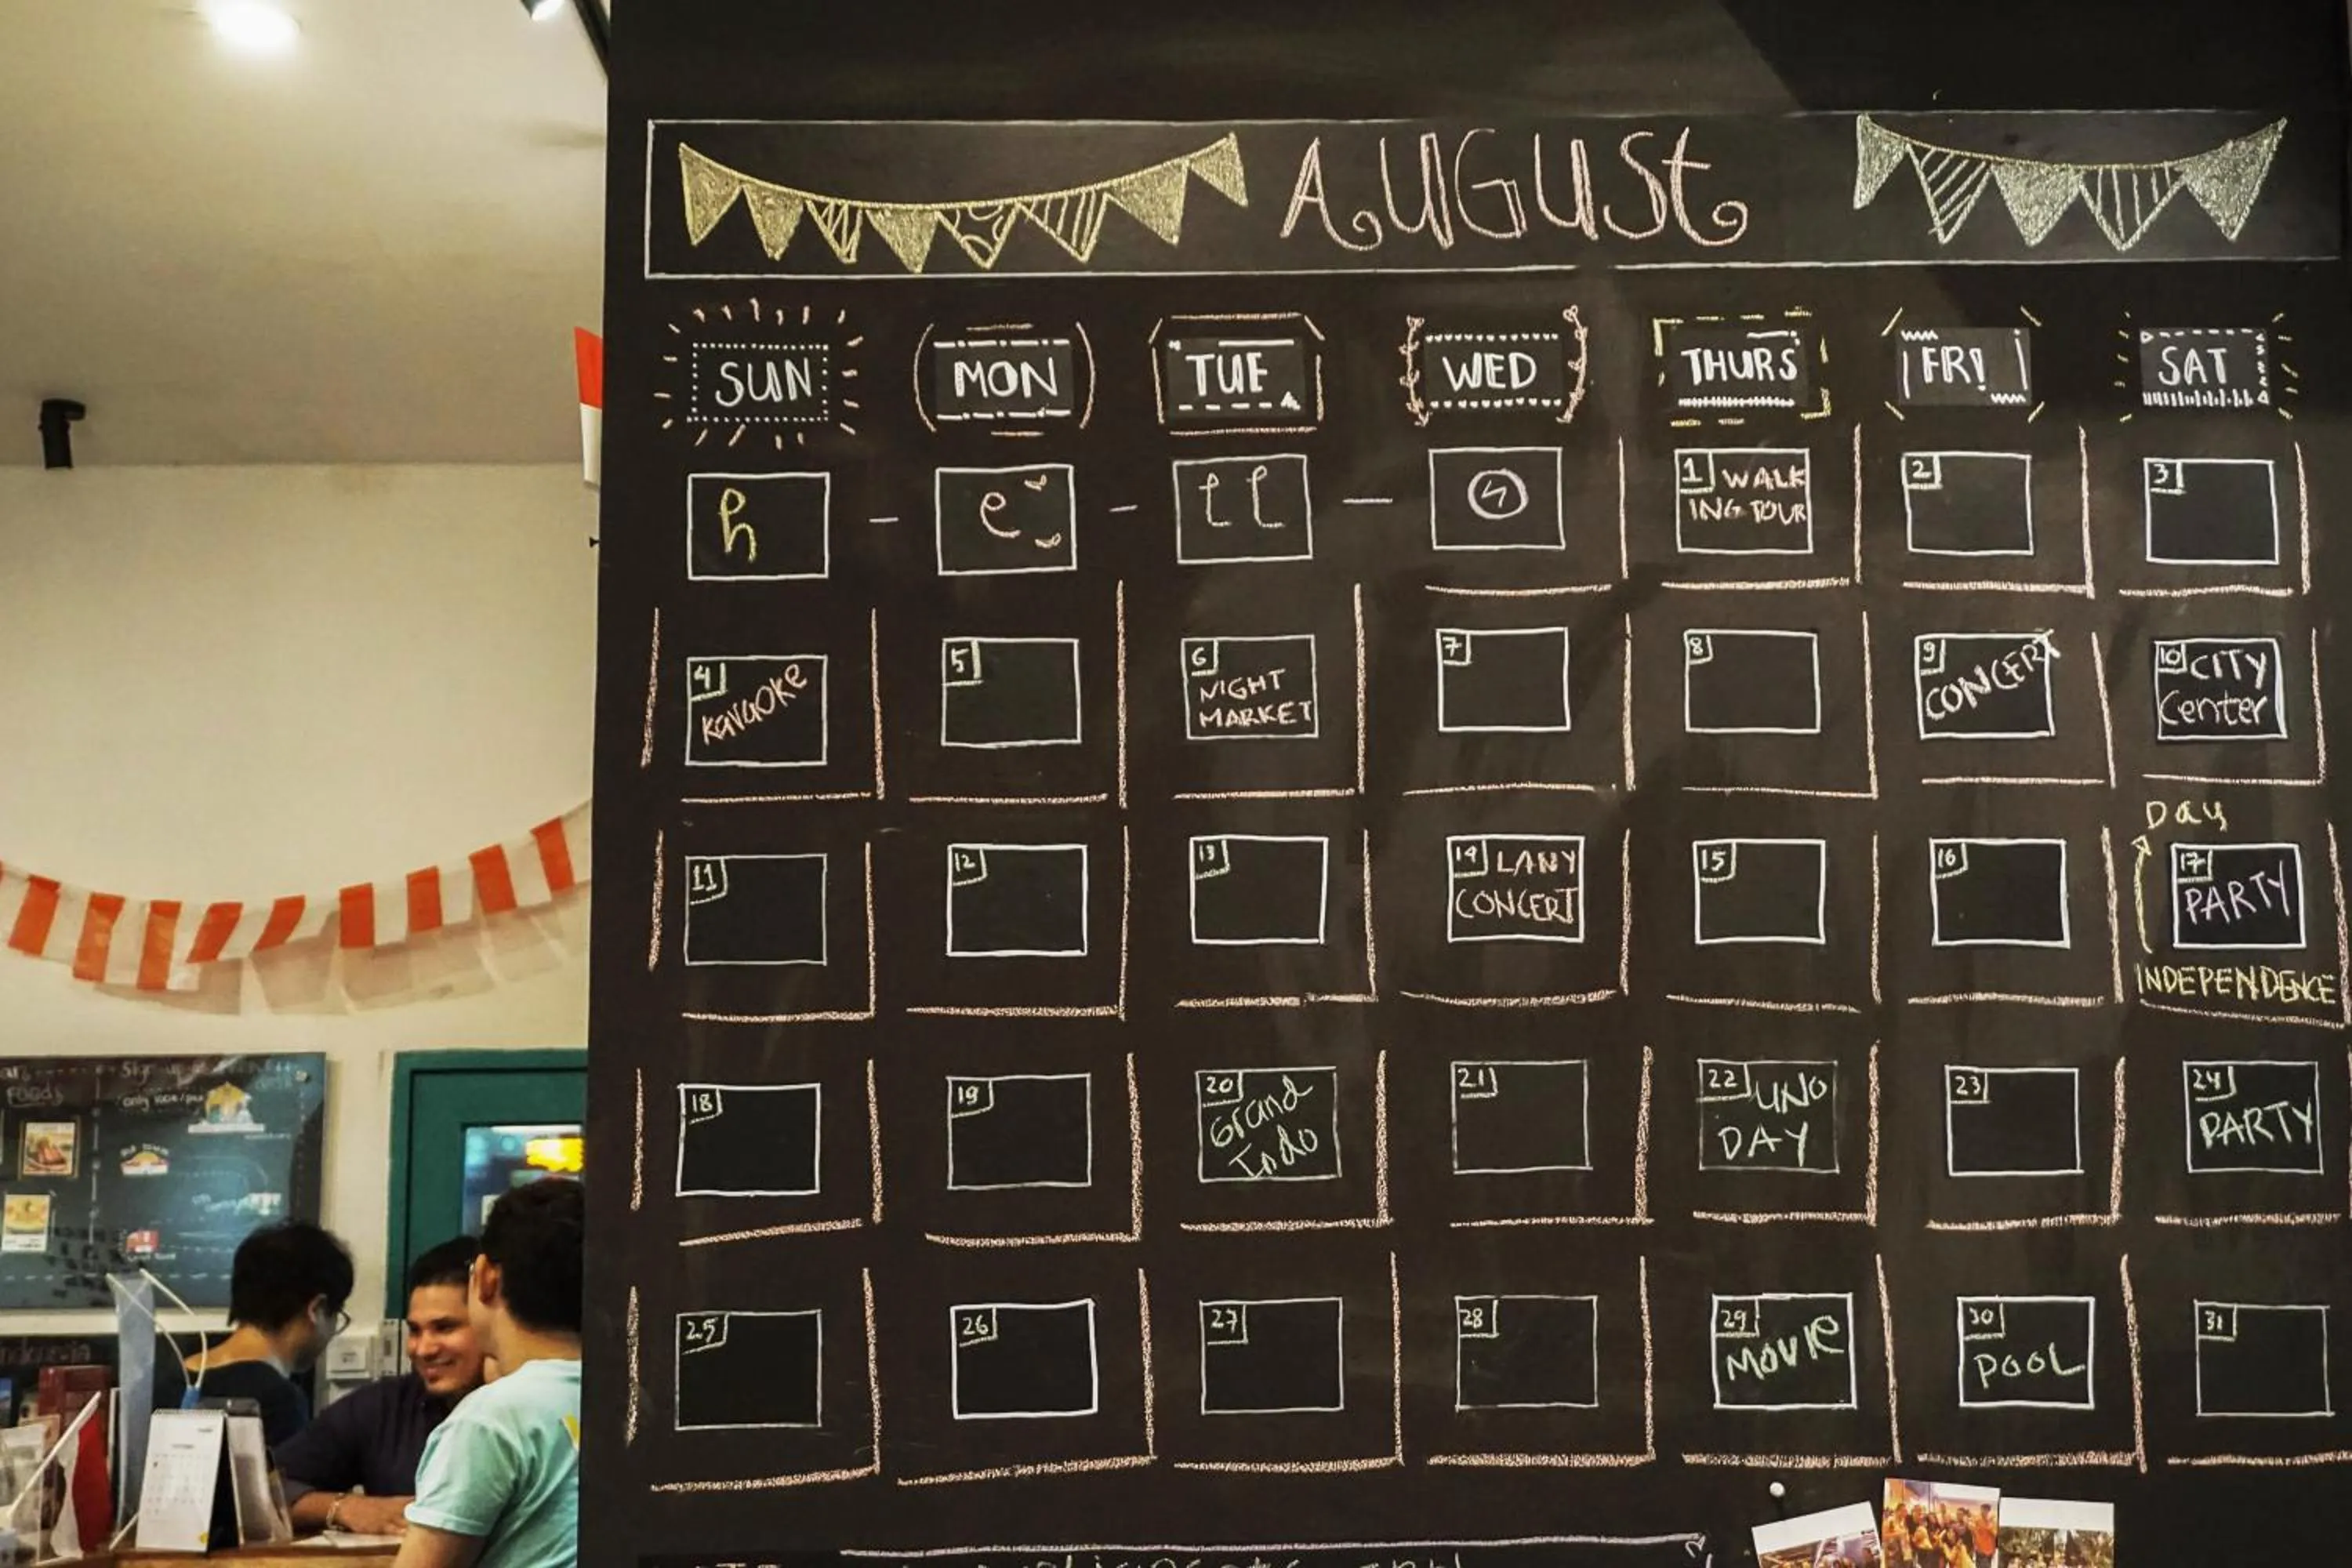 AUGUST
SUN MON TUE WED THURS FRI SAT
h - e - ll - O
1 WALK
ING TOUR
2
3
4
Karaoke
5
6
NIGHT
MARKET
7
8
9
CONCERT
10 CITY
Center
11
12
13
14 LANY
CONCERT
15
16
Day
17
PARTY
INDEPENDENCE
18
19
20
Grand
Indo
21
22 UNO
DAY
23
24
PARTY
25
26
27
28
29
MOVIE
30
POOL
31
FOODS